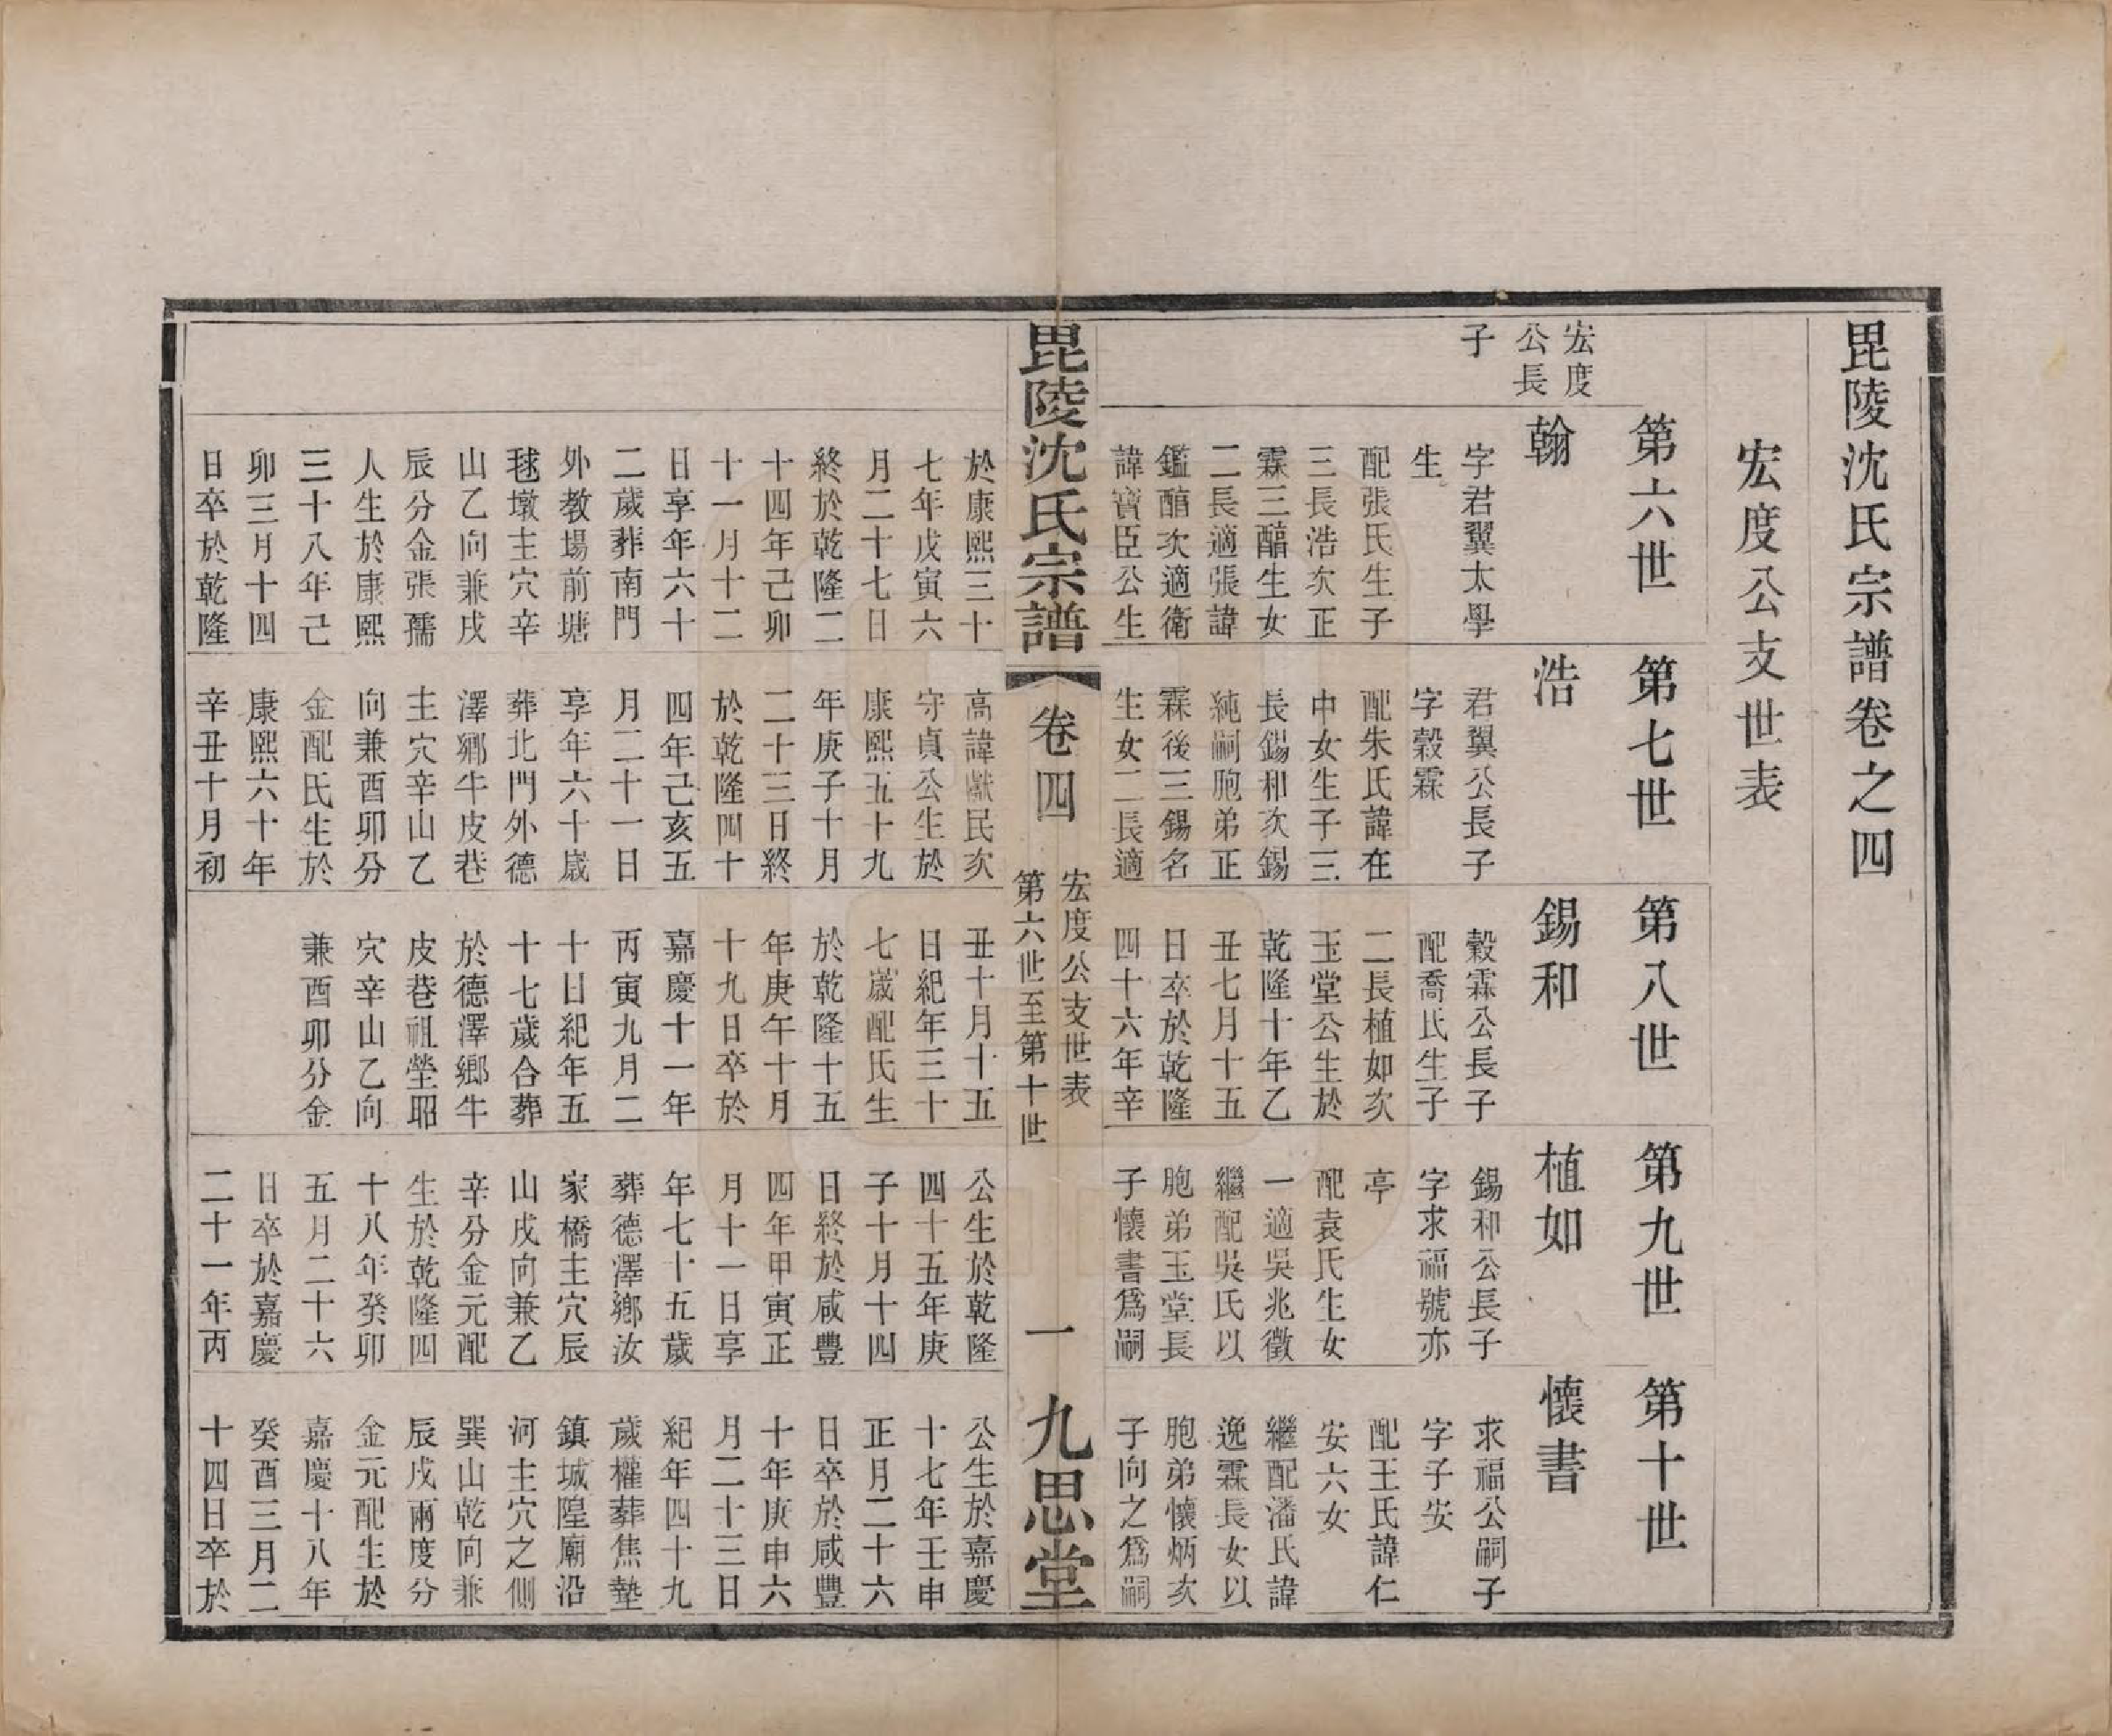 毘陵沈氏宗譜卷之四
宏度公支世表
第六世
第七世
第八世
第九世
第十世
宏度
公長
子
翰
字君翼太學
生
配張氏生子
三長浩次正
霖三醕生女
二長適張諱
鑑醕次適衛
諱寶臣公生
浩
君翼公長子
字榖霖
配朱氏諱在
中女生子三
長錫和次錫
純嗣胞弟正
霖後三錫名
生女二長適
錫和
榖霖公長子
配喬氏生子
二長植如次
玉堂公生於
乾隆十年乙
丑七月十五
日卒於乾隆
四十六年辛
植如
錫和公長子
字求福號亦
亭
配袁氏生女
一適吳兆徵
繼配吳氏以
胞弟玉堂長
子懷書爲嗣
懷書
求福公嗣子
字子安
配王氏諱仁
安六女
繼配潘氏諱
逸霖長女以
胞弟懷炳次
子向之爲嗣
毘陵沈氏宗譜
卷四
宏度公支世表
第六世至第十世
一
九思堂
於康熙三十
七年戊寅六
月二十七日
終於乾隆二
十四年己卯
十一月十二
日享年六十
二歲葬南門
外教場前塘
毬墩主穴辛
山乙向兼戌
辰分金張孺
人生於康熙
三十八年己
卯三月十四
日卒於乾隆
高諱獻民次
守貞公生於
康熙五十九
年庚子十月
二十三日終
於乾隆四十
四年己亥五
月二十一日
享年六十歲
葬北門外德
澤鄉牛皮巷
主穴辛山乙
向兼酉卯分
金配氏生於
康熙六十年
辛丑十月初
丑十月十五
日紀年三十
七歲配氏生
於乾隆十五
年庚午十月
十九日卒於
嘉慶十一年
丙寅九月二
十日紀年五
十七歲合葬
於德澤鄉牛
皮巷祖塋昭
穴辛山乙向
兼酉卯分金
公生於乾隆
四十五年庚
子十月十四
日終於咸豐
四年甲寅正
月十一日享
年七十五歲
葬德澤鄉汝
家橋主穴辰
山戌向兼乙
辛分金元配
生於乾隆四
十八年癸卯
五月二十六
日卒於嘉慶
二十一年丙
公生於嘉慶
十七年壬申
正月二十六
日卒於咸豐
十年庚申六
月二十三日
紀年四十九
歲權葬焦墊
鎮城隍廟沿
河主穴之側
巽山乾向兼
辰戌兩度分
金元配生於
嘉慶十八年
癸酉三月二
十四日卒於